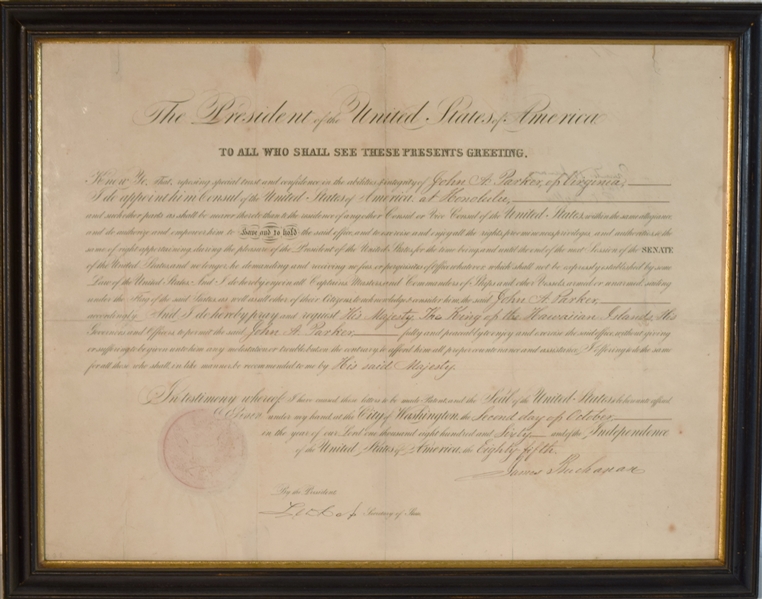 The President of the United States of America
TO ALL WHO SHALL SEE THESE PRESENTS GREETING.
Know Ye, That, reposing special trust and confidence in the abilities & integrity of John A. Parker, of Virginia,
I do appoint him Consul of the United States of America, at Honolulu,
and such other parts as shall be nearer thereto than to the residence of any other Consul or Vice Consul of the United States, within the same allegiance
and do authorize and empower him to Have and to hold the said office, and to exercise and enjoy all the rights, preeminences, privileges and authorities to the
same of right appertaining, during the pleasure of the President of the United States, for the time being and until the end of the next Session of the SENATE
of the United States, and no longer, he demanding and receiving no fees or perquisites of Office whatever which shall not be expressly established by some
Law of the United States. And I do hereby enjoin all Captains, Masters and Commanders of Ships and other Vessels, armed or unarmed, sailing
under the Flag of the said States, as well as all other of their Citizens, to acknowledge & consider him, the said John A. Parker
accordingly. And I do hereby pray and request His Majesty The King of the Hawaiian Islands, His
Governors and Officers, to permit the said John A. Parker fully and peaceably to enjoy and exercise the said office, without giving
or suffering to be given unto him any molestation or trouble, but on the contrary to afford him all proper countenance and assistance, I offering to do the same
for all those who shall in like manner be recommended to me by His said Majesty.
In testimony whereof, I have caused these letters to be made Patent, and the Seal of the United States to be hereunto affixed
Given under my hand, at the City of Washington, the Second day of October
in the year of our Lord one thousand eight hundred and Sixty and of the Independence
of the United States of America, the Eighty fifth.
James Buchanan
By the President
Secretary of State